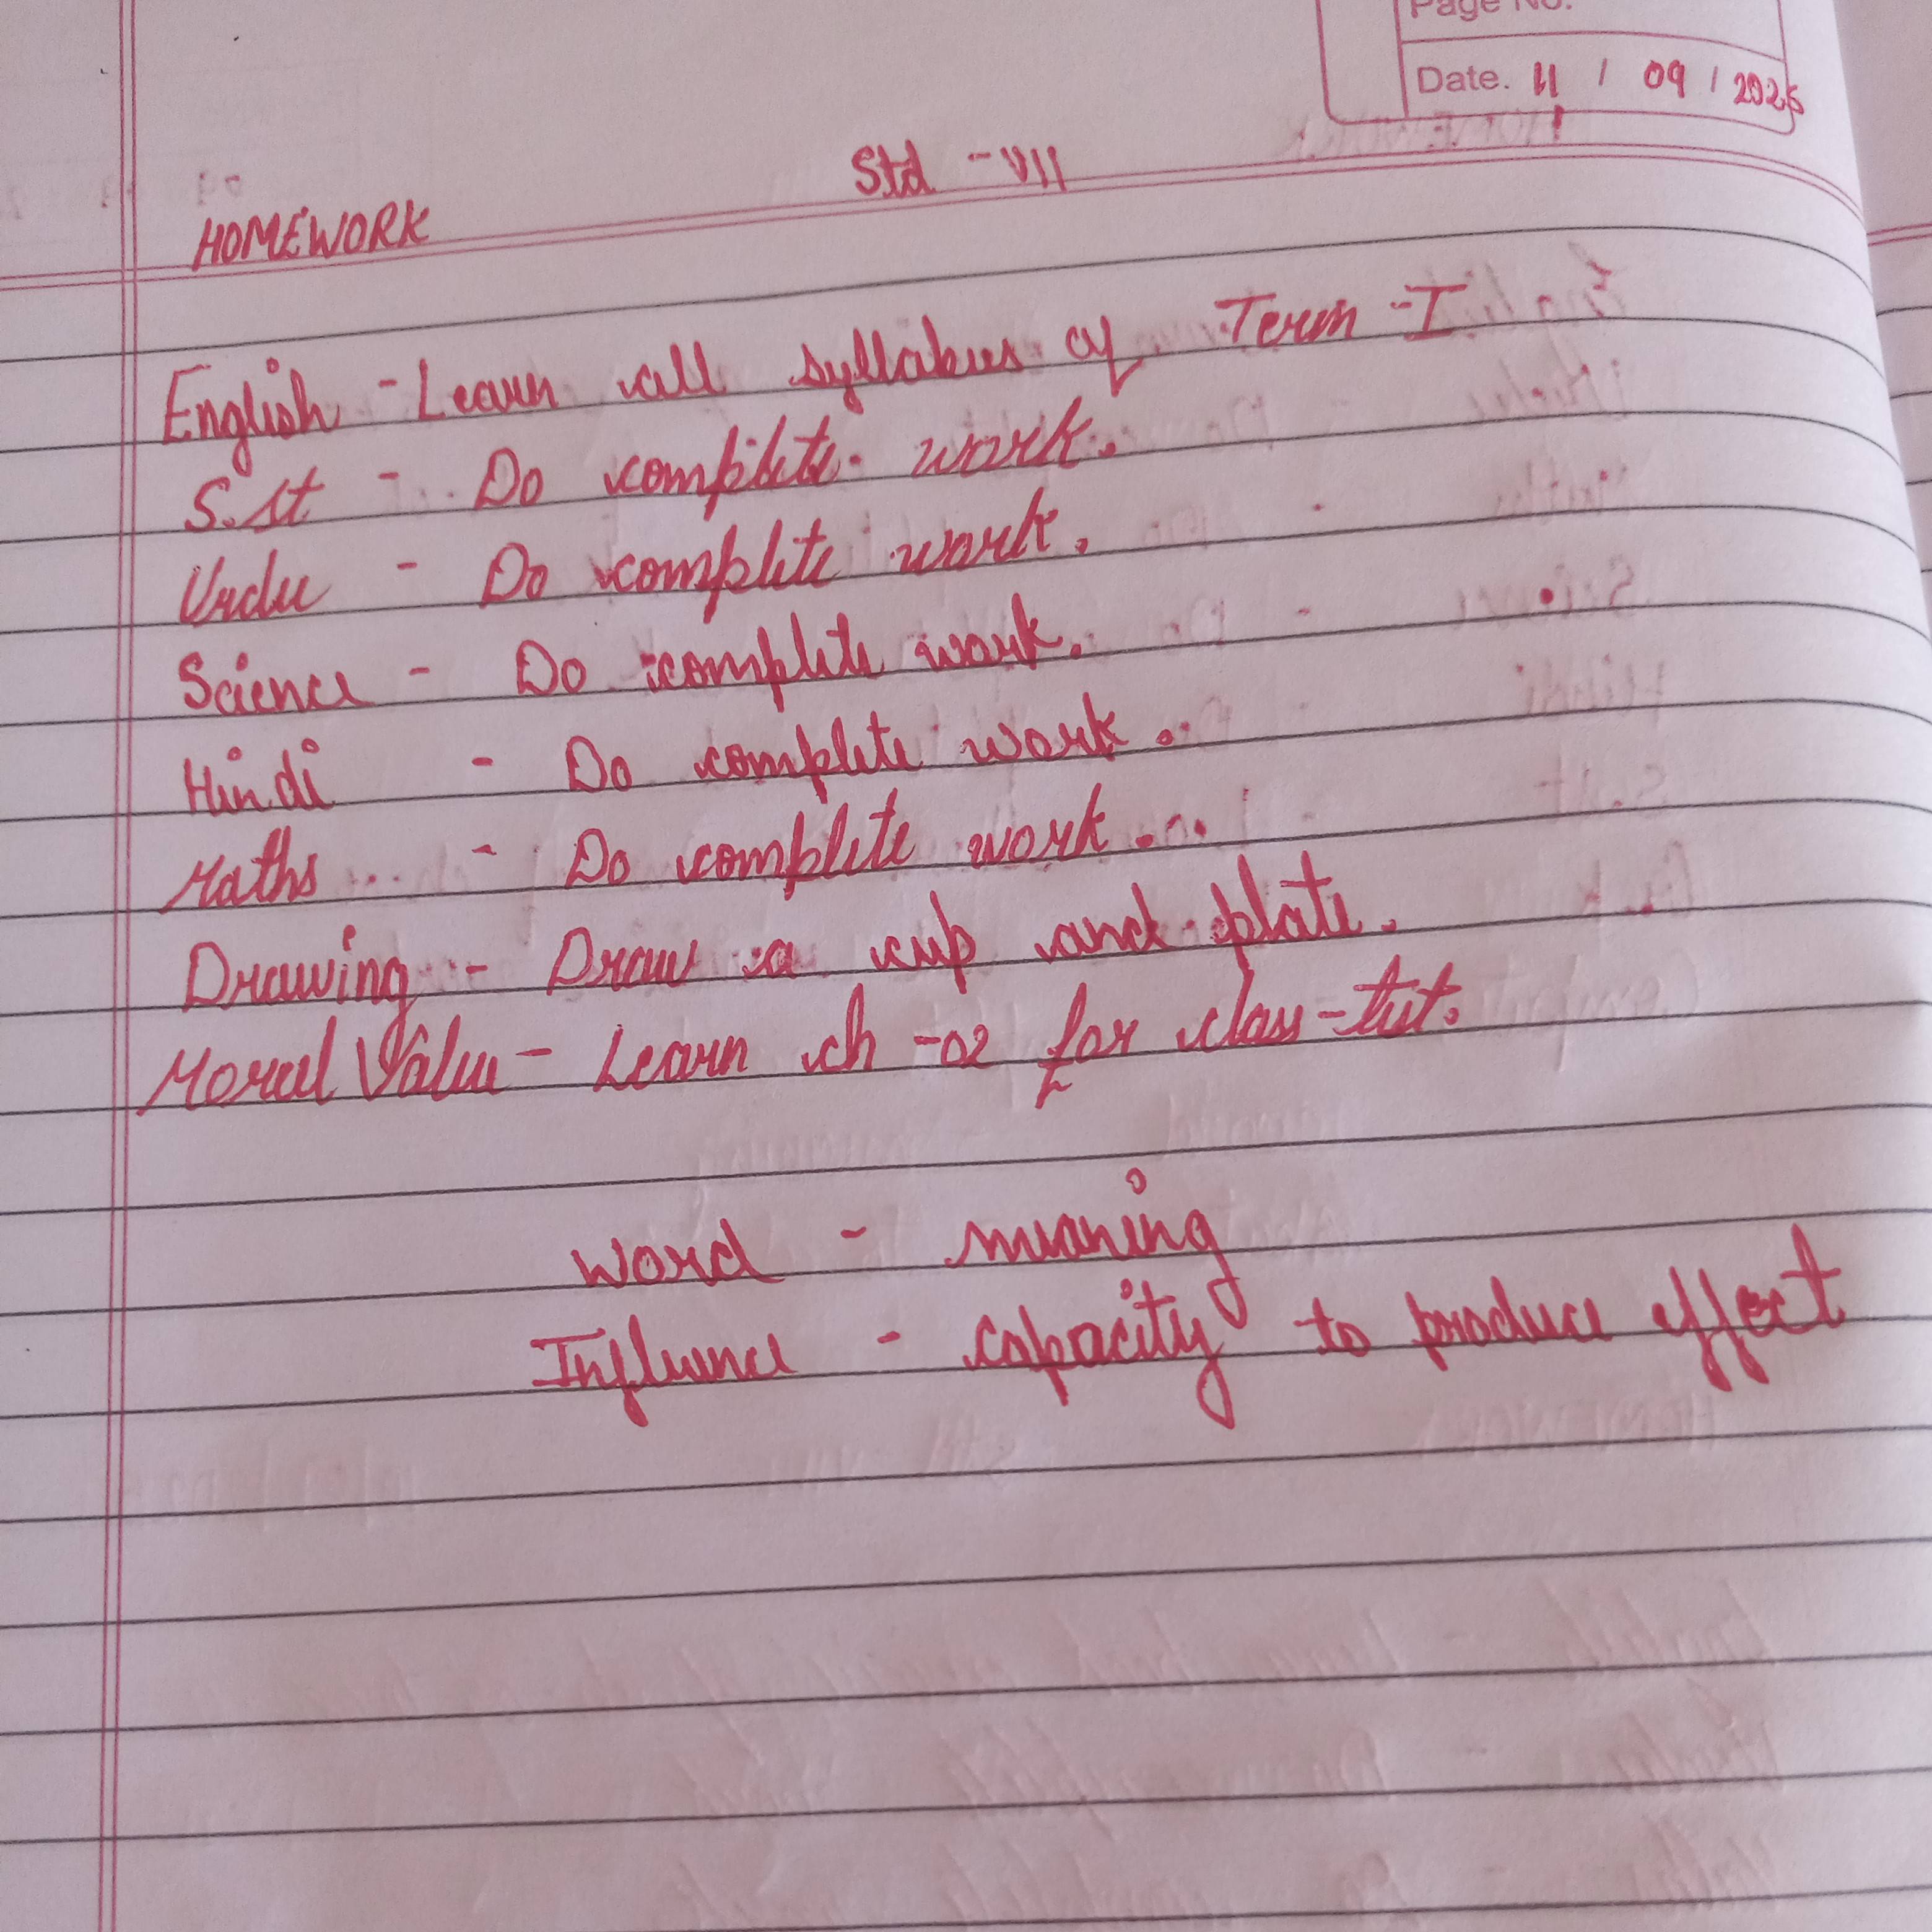 Page No.
Date. 11 / 09 / 2025
Std - VII
HOMEWORK
English - Learn all syllabus of Term - I
S.st - Do complete work.
Urdu - Do complete work.
Science - Do complete work.
Hindi - Do complete work.
Maths - Do complete work.
Drawing - Draw a cup and plate.
Moral Value - Learn ch - 02 for class - test.
Word - meaning
Influence - capacity to produce effect